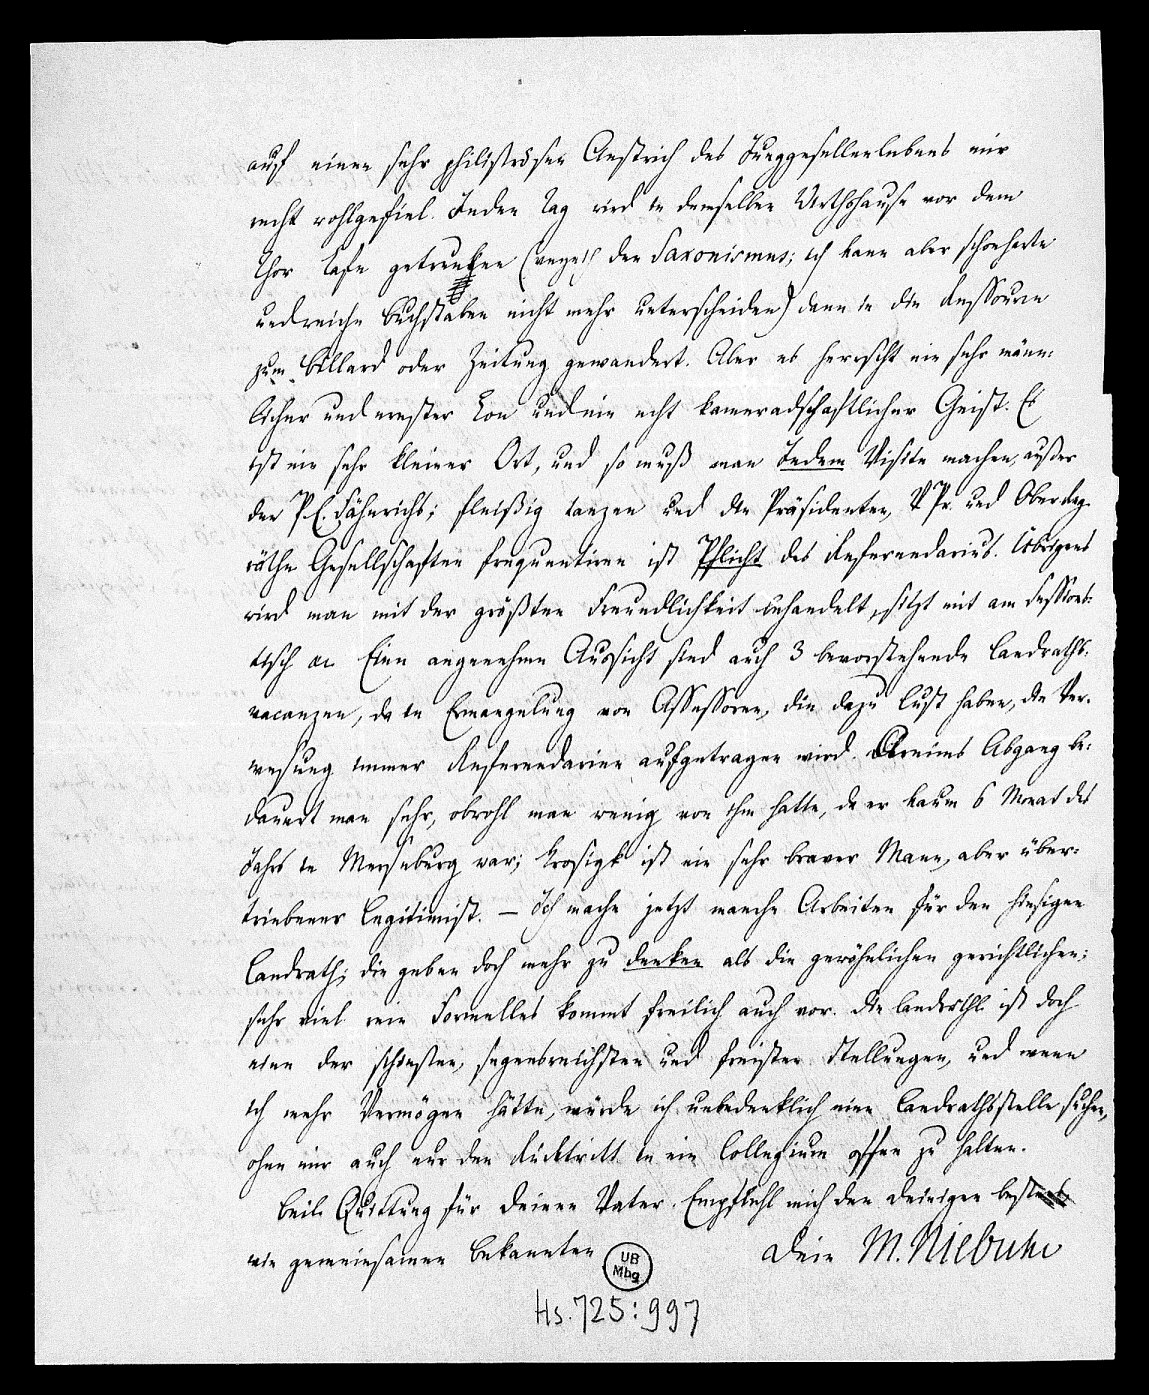 auf einen sehr philiströsen Anstrich des Junggesellenlebens mir
recht wohlgefiel. Jeden Tag wird in demselben Wirthshause vor dem
Thor Kafe getrunken (verzeih den Saxonismus; ich kann aber schon harte
und weiche Buchstaben nicht mehr unterscheiden) dann in die Ressource
zum Billard oder Zeitung gewandert. Aber es herrscht ein sehr männ-
licher und ernster Ton und ein echt kameradschaftlicher Geist. Es
ist ein sehr kleiner Ort, und so muß man Jedem Visite machen, außer
den P.E. Fähnrichs; fleißig tanzen und die Präsidenten, VPr. und Oberreg.
räthe Gesellschaften frequentiren ist Pflicht des Referendarius. Uebrigens
wird man mit der größten Freundlichkeit behandelt, sitzt mit am Sessions-
tisch etc Eine angenehme Aussicht sind auch 3 bevorstehende Landraths-
vacanzen, da in Ermangelung von Assessoren, die dazu Lust haben, die Ver-
wesung immer Referendarien aufgetragen wird. Arnims Abgang be-
dauert man sehr, obwohl man wenig von ihm hatte, da er kaum 6 Monat des
Jahrs in Merseburg war; Krosigk ist ein sehr braver Mann, aber über-
triebener Legitimist. — Ich mache jetzt manche Arbeiten für den hiesigen
Landrath; die geben doch mehr zu denken als die gewöhnlichen gerichtlichen;
sehr viel rein Formelles kommt freilich auch vor. Die Landrathl. ist doch
eine der schönsten, segensreichsten und freisten Stellungen, und wenn
ich mehr Vermögen hätte, würde ich unbedenklich eine Landrathsstelle suchen,
ohne mir auch nur den Rücktritt in ein Collegium offen zu halten.
Beil. Quittung für deinen Vater. Empfiehl mich den Deinigen bestens
wie gemeinsamen Bekannten
Dein M. Niebuhr
UB
Mbg
Hs. 725:997